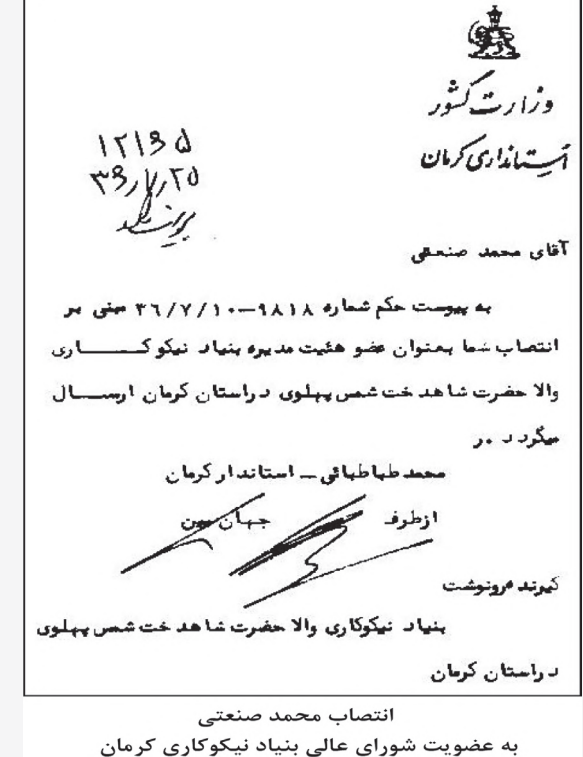 وزارت کشور
استانداری کرمان
۱۲۱۶۵
۳۶٫۱۰٫۲۵
پیوست دارد
آقای محمد صنعتی
به پیوست حکم شماره ۹۸۱۸–۳۶/۷/۱۰ مبنی بر
انتصاب شما بعنوان عضو هئیت مدیره بنیاد نیکوکاری
والا حضرت شاهدخت شمس پهلوی در استان کرمان ارسال
میگردد .ر
محمد طباطبائی – استاندار کرمان
ازطرف جهان بین
گیرنده رونوشت
بنیاد نیکوکاری والا حضرت شاهدخت شمس پهلوی
در استان کرمان
انتصاب محمد صنعتی
به عضویت شورای عالی بنیاد نیکوکاری کرمان